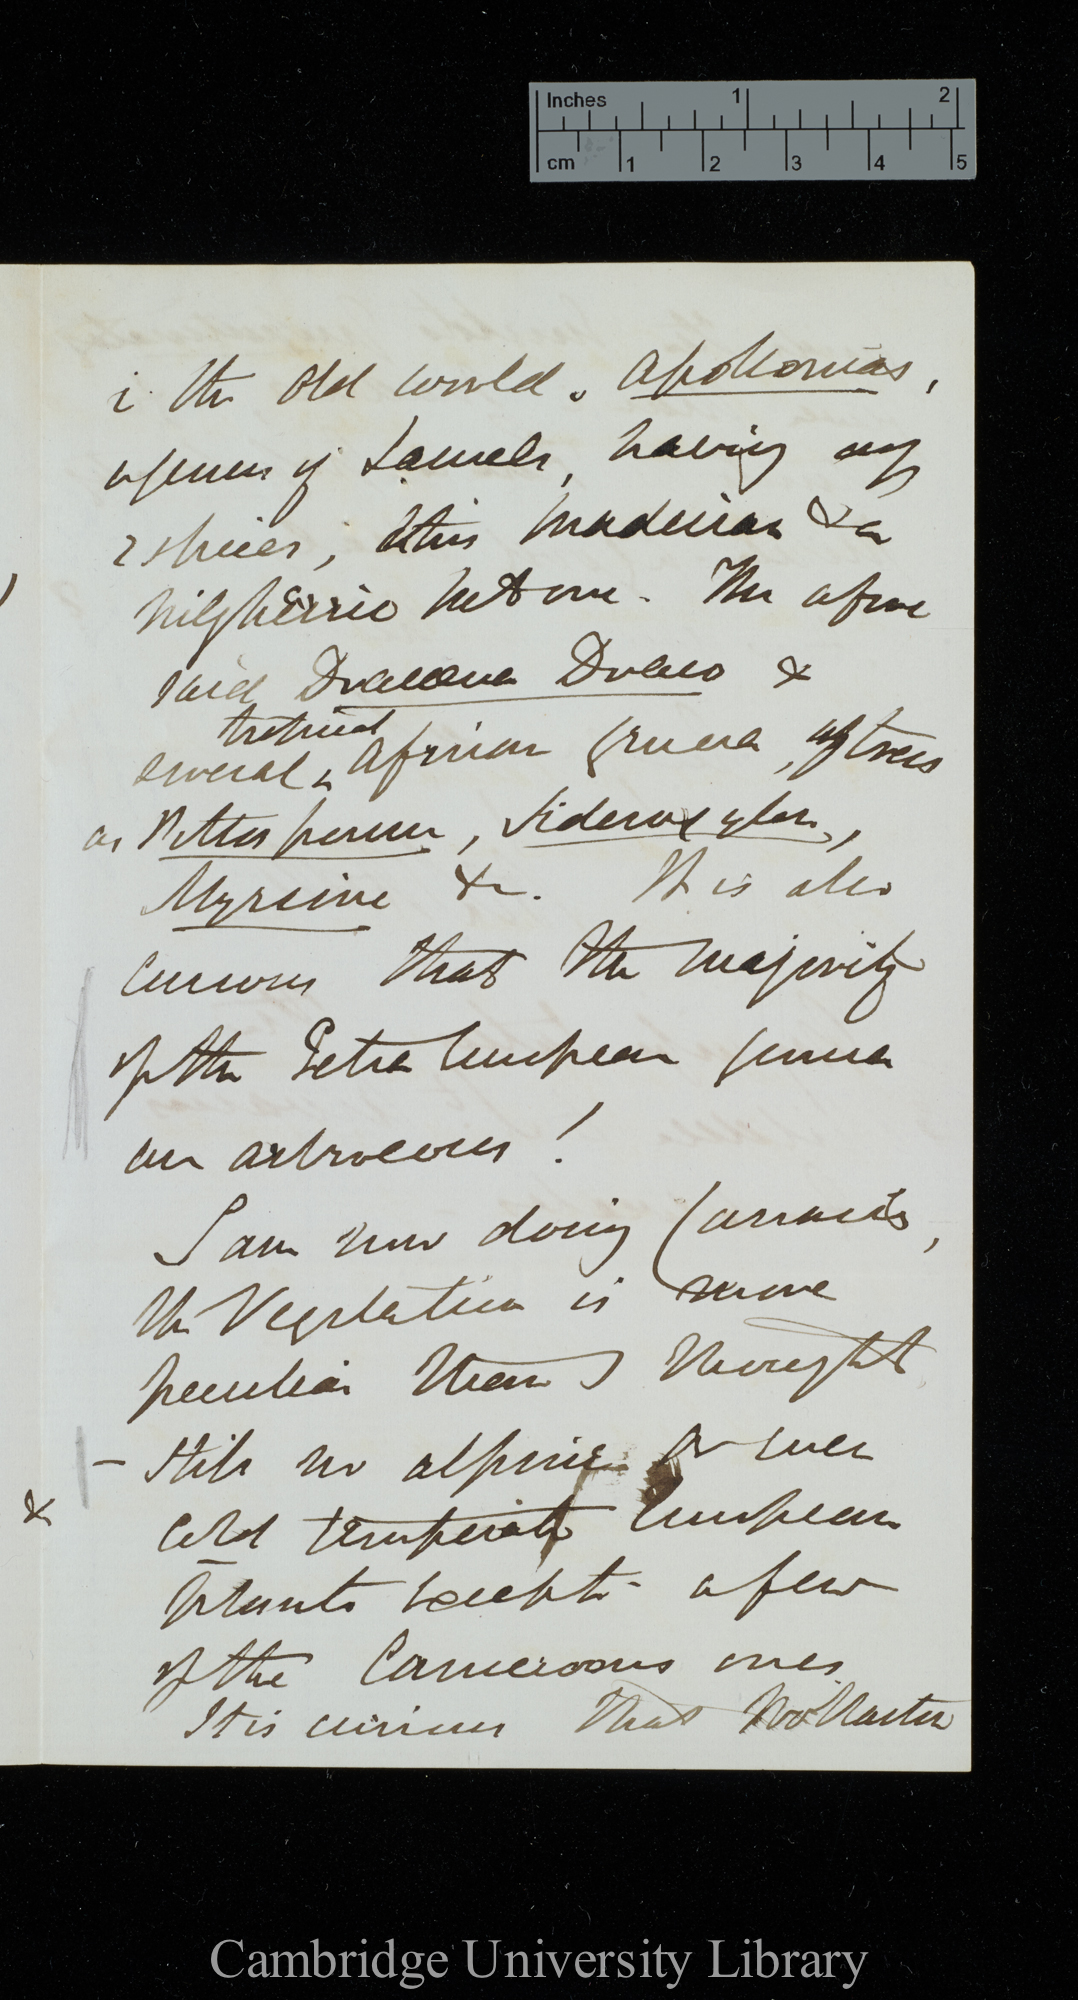 Inches 1 2
cm 1 2 3 4 5
i the Old world. Apollonias,
a genus of Laurels, having only
2 species, this Madeiran & a
Nilgherrie Mt one. The afore
said Dracaena Draco &
tropical
several African genera, of trees
as Pittosporum, Sideroxylon,
Myrsine &c. It is also
curious that the majority
of the Extra European genera
are arboreous!
I am now doing Canaries,
the Vegetation is more
peculiar than I thought
— still no alpine or even
&
cold temperate European
plants except a few
of the Cameroons ones
It is curious that Wollaston
Cambridge University Library